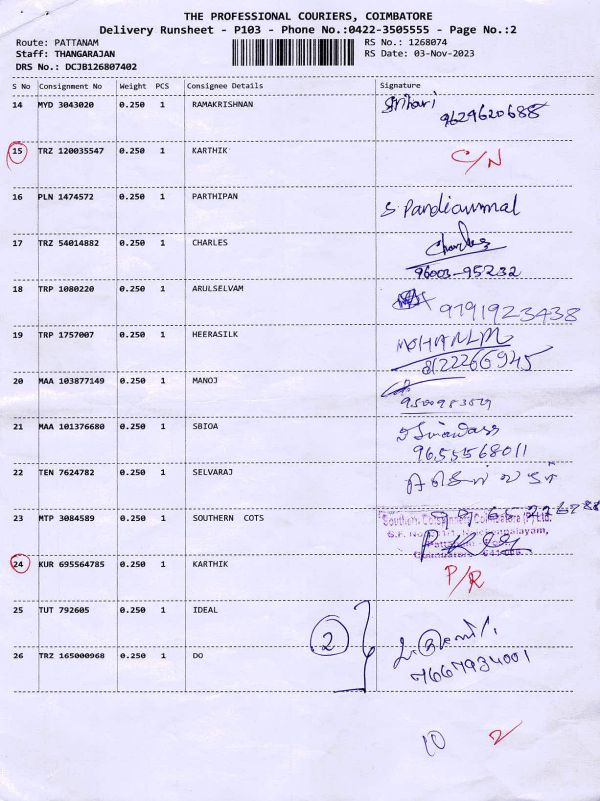 THE PROFESSIONAL COURIERS, COIMBATORE
Delivery Runsheet - P103 - Phone No.:0422-3505555 - Page No.:2
Route: PATTANAM
RS No.: 1268074
Staff: THANGARAJAN
RS Date: 03-Nov-2023
DRS No.: DCJB126807402
S No Consignment No Weight PCS Consignee Details Signature
14 MYD 3043020 0.250 1 RAMAKRISHNAN Srihari
9629620688
15 TRZ 120035547 0.250 1 KARTHIK C/N
16 PLN 1474572 0.250 1 PARTHIPAN S Pandiammal
17 TRZ 54014882 0.250 1 CHARLES Charles
96003-95232
18 TRP 1080220 0.250 1 ARULSELVAM 9791923438
19 TRP 1757007 0.250 1 HEERASILK MOHANLM
8122266945
20 MAA 103877149 0.250 1 MANOJ
21 MAA 101376680 0.250 1 SBIOA
9655568011
22 TEN 7624782 0.250 1 SELVARAJ
23 MTP 3084589 0.250 1 SOUTHERN COTS
24 KUR 695564785 0.250 1 KARTHIK P/R
25 TUT 792605 0.250 1 IDEAL
2
26 TRZ 165000968 0.250 1 DO 7667934001
10 2